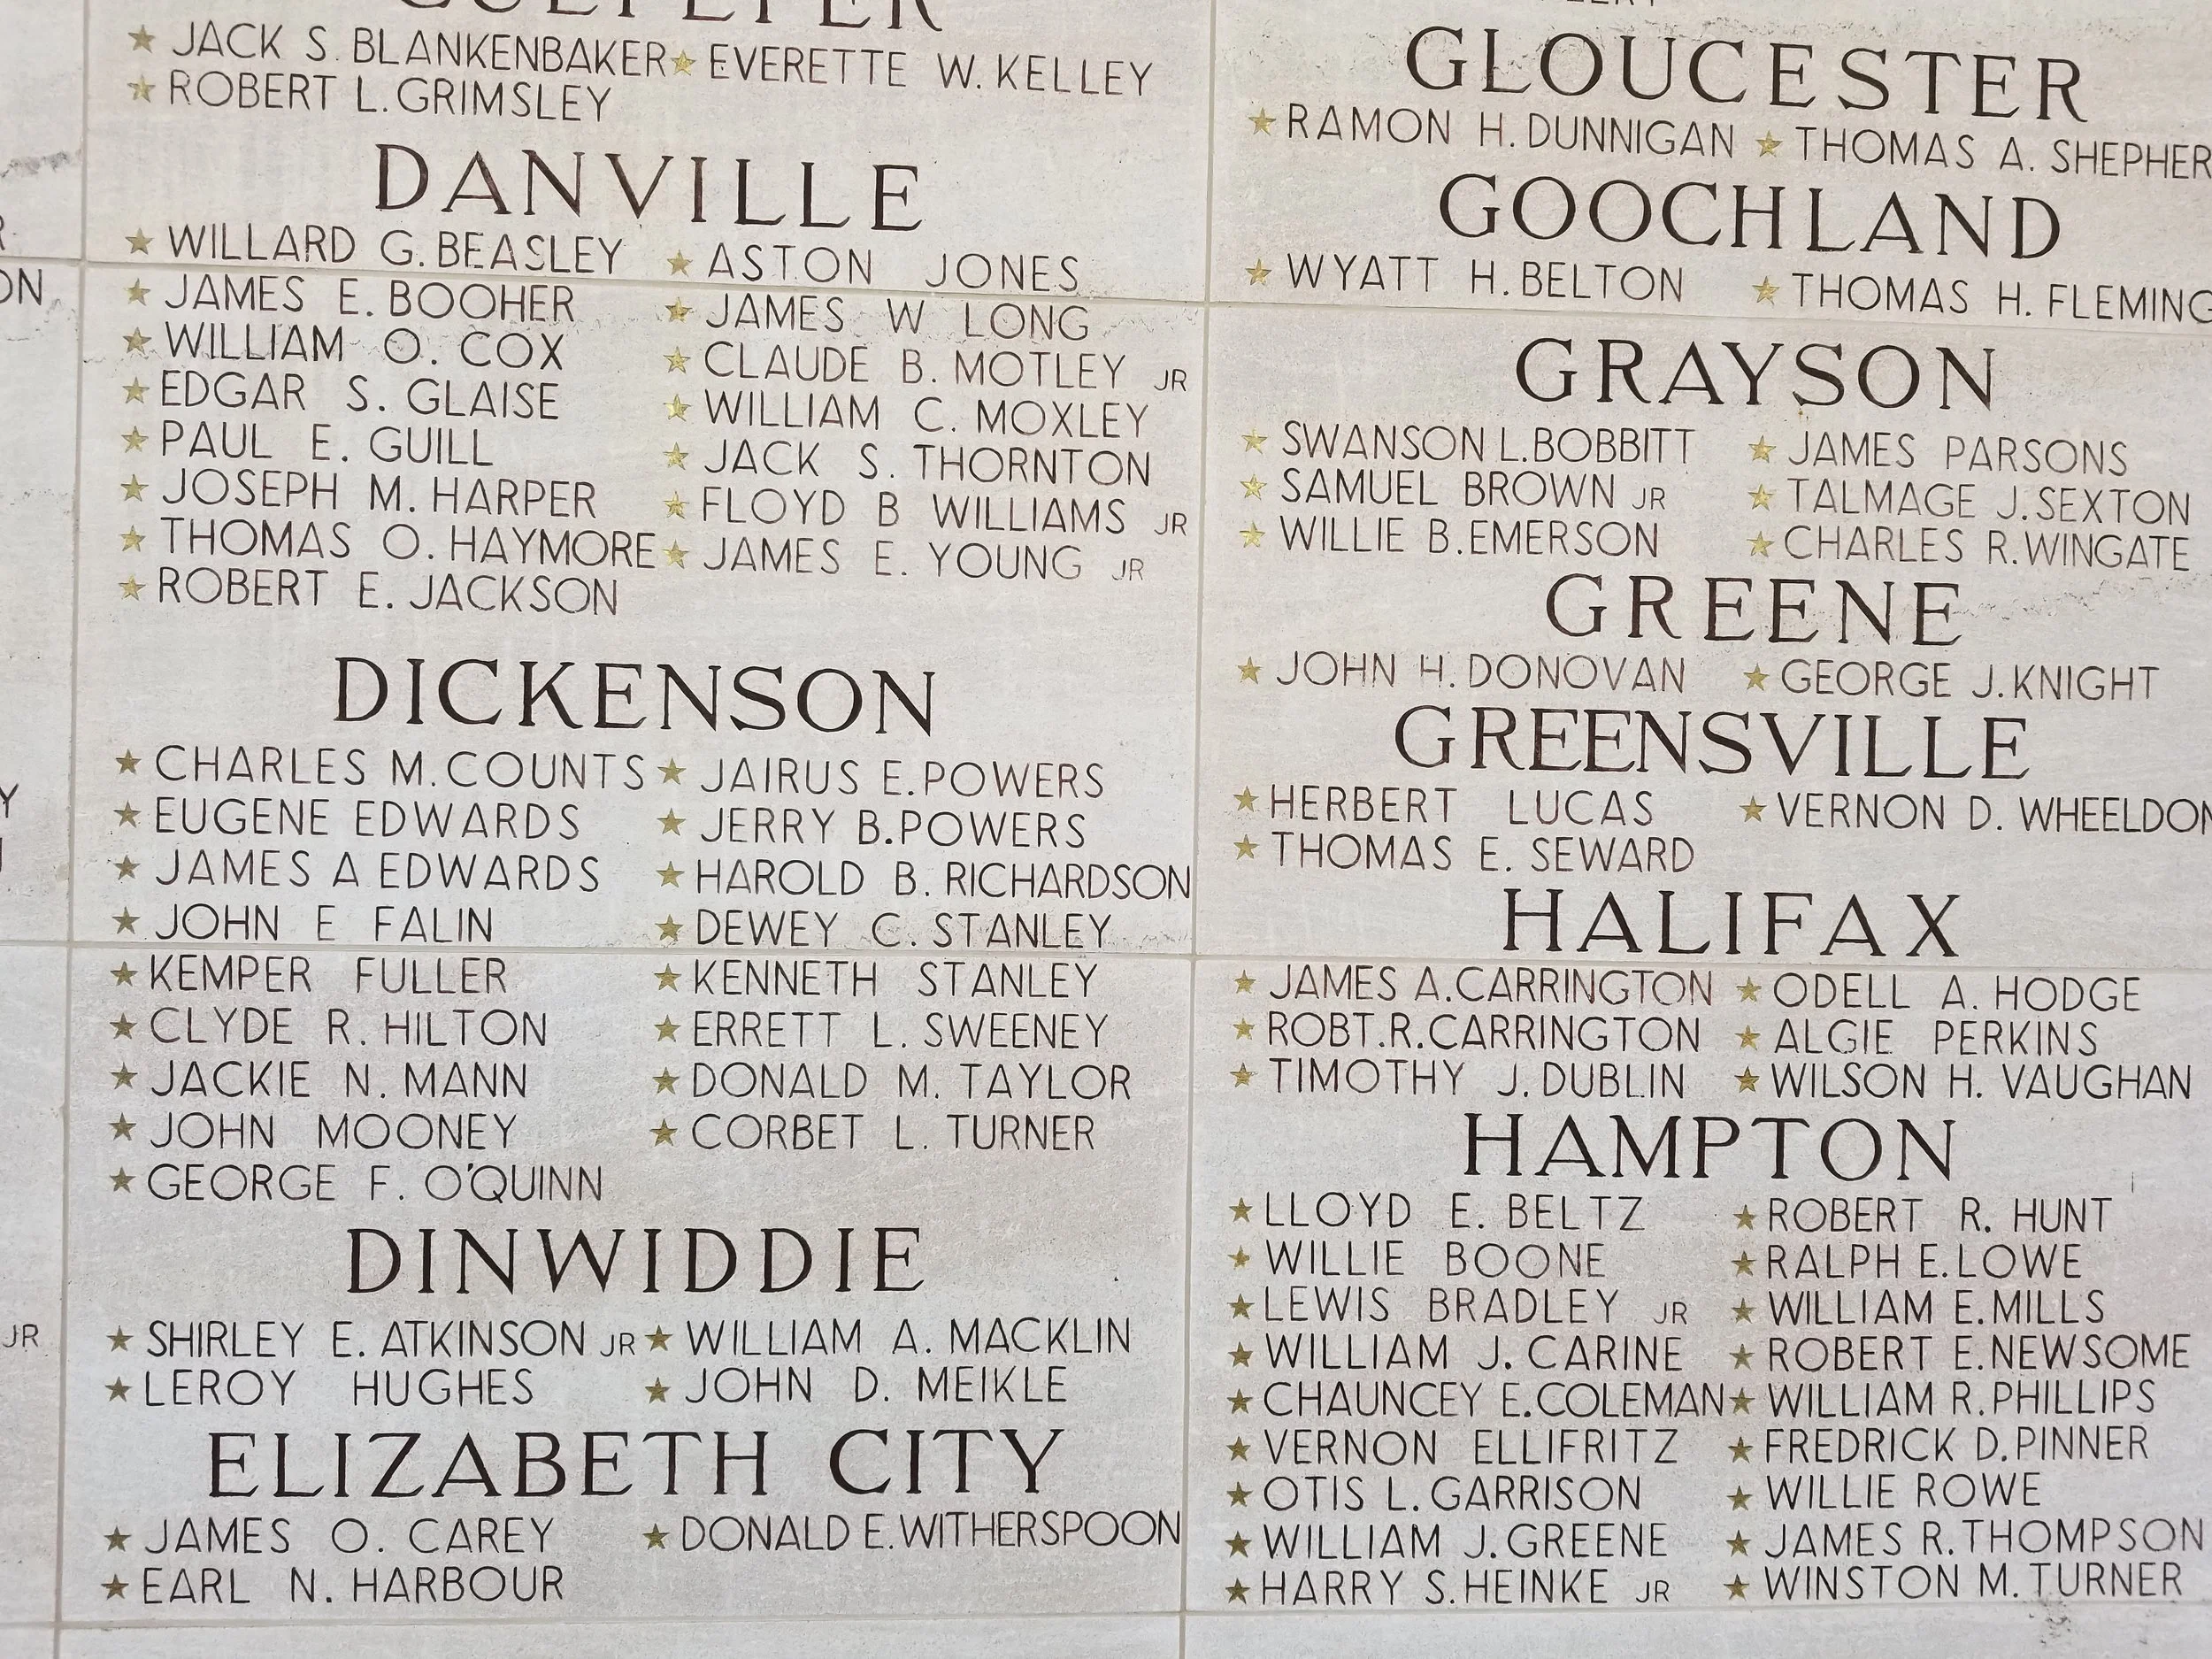 JACK S. BLANKENBAKER ★ EVERETTE W. KELLEY
ROBERT L. GRIMSLEY
DANVILLE
WILLARD G. BEASLEY ★ ASTON JONES
JAMES E. BOOHER ★ JAMES W LONG
WILLIAM O. COX ★ CLAUDE B. MOTLEY JR
EDGAR S. GLAISE ★ WILLIAM C. MOXLEY
PAUL E. GUILL ★ JACK S. THORNTON
JOSEPH M. HARPER ★ FLOYD B WILLIAMS JR
THOMAS O. HAYMORE ★ JAMES E. YOUNG JR
ROBERT E. JACKSON
DICKENSON
CHARLES M. COUNTS ★ JAIRUS E. POWERS
EUGENE EDWARDS ★ JERRY B. POWERS
JAMES A EDWARDS ★ HAROLD B. RICHARDSON
JOHN E FALIN ★ DEWEY C. STANLEY
KEMPER FULLER ★ KENNETH STANLEY
CLYDE R. HILTON ★ ERRETT L. SWEENEY
JACKIE N. MANN ★ DONALD M. TAYLOR
JOHN MOONEY ★ CORBET L. TURNER
GEORGE F. O'QUINN
DINWIDDIE
SHIRLEY E. ATKINSON JR ★ WILLIAM A. MACKLIN
LEROY HUGHES ★ JOHN D. MEIKLE
ELIZABETH CITY
JAMES O. CAREY ★ DONALD E. WITHERSPOON
EARL N. HARBOUR
GLOUCESTER
RAMON H. DUNNIGAN ★ THOMAS A. SHEPHER
GOOCHLAND
WYATT H. BELTON ★ THOMAS H. FLEMING
GRAYSON
SWANSON L. BOBBITT ★ JAMES PARSONS
SAMUEL BROWN JR ★ TALMAGE J. SEXTON
WILLIE B. EMERSON ★ CHARLES R. WINGATE
GREENE
JOHN H. DONOVAN ★ GEORGE J. KNIGHT
GREENSVILLE
HERBERT LUCAS ★ VERNON D. WHEELDON
THOMAS E. SEWARD
HALIFAX
JAMES A. CARRINGTON ★ ODELL A. HODGE
ROBT. R. CARRINGTON ★ ALGIE PERKINS
TIMOTHY J. DUBLIN ★ WILSON H. VAUGHAN
HAMPTON
LLOYD E. BELTZ ★ ROBERT R. HUNT
WILLIE BOONE ★ RALPH E. LOWE
LEWIS BRADLEY JR ★ WILLIAM E. MILLS
WILLIAM J. CARINE ★ ROBERT E. NEWSOME
CHAUNCEY E. COLEMAN ★ WILLIAM R. PHILLIPS
VERNON ELLIFRITZ ★ FREDRICK D. PINNER
OTIS L. GARRISON ★ WILLIE ROWE
WILLIAM J. GREENE ★ JAMES R. THOMPSON
HARRY S. HEINKE JR ★ WINSTON M. TURNER